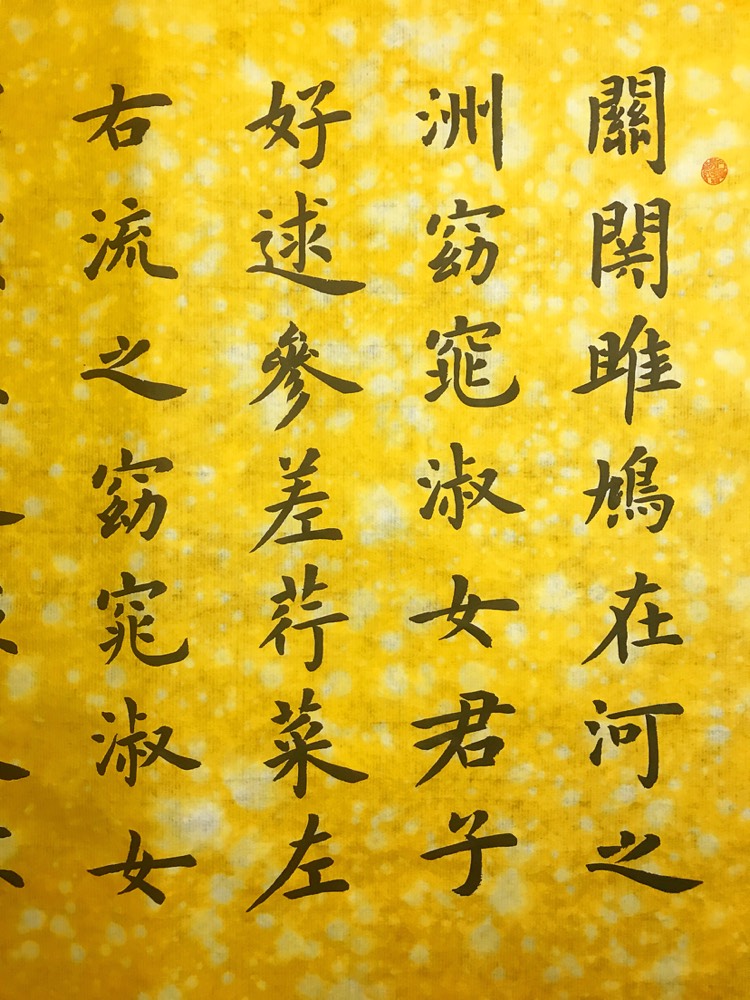 關関雎鳩在河之
洲窈窕淑女君子
好逑參差荇菜左
右流之窈窕淑女